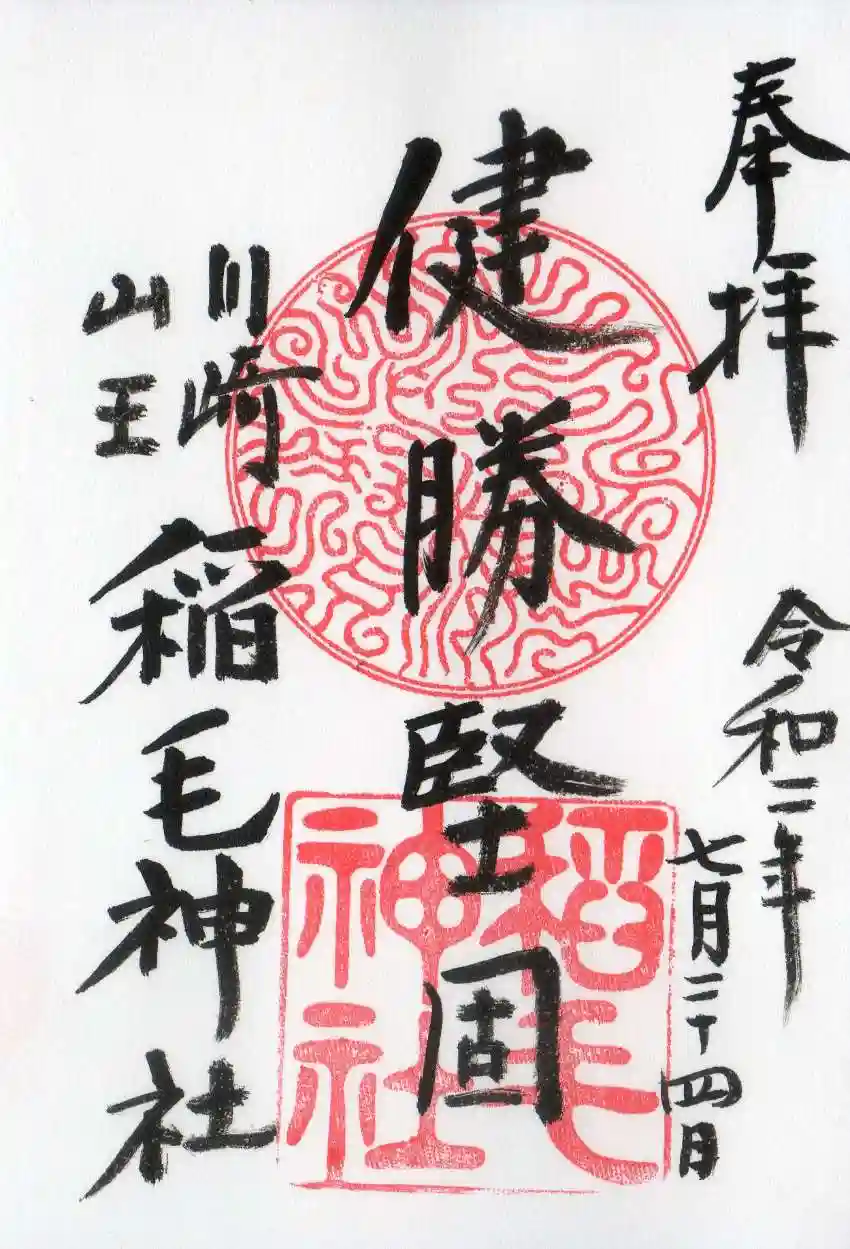 奉拝
令和二年
七月二十四日
健勝堅固
川崎
山王
稲毛神社
稲毛神社